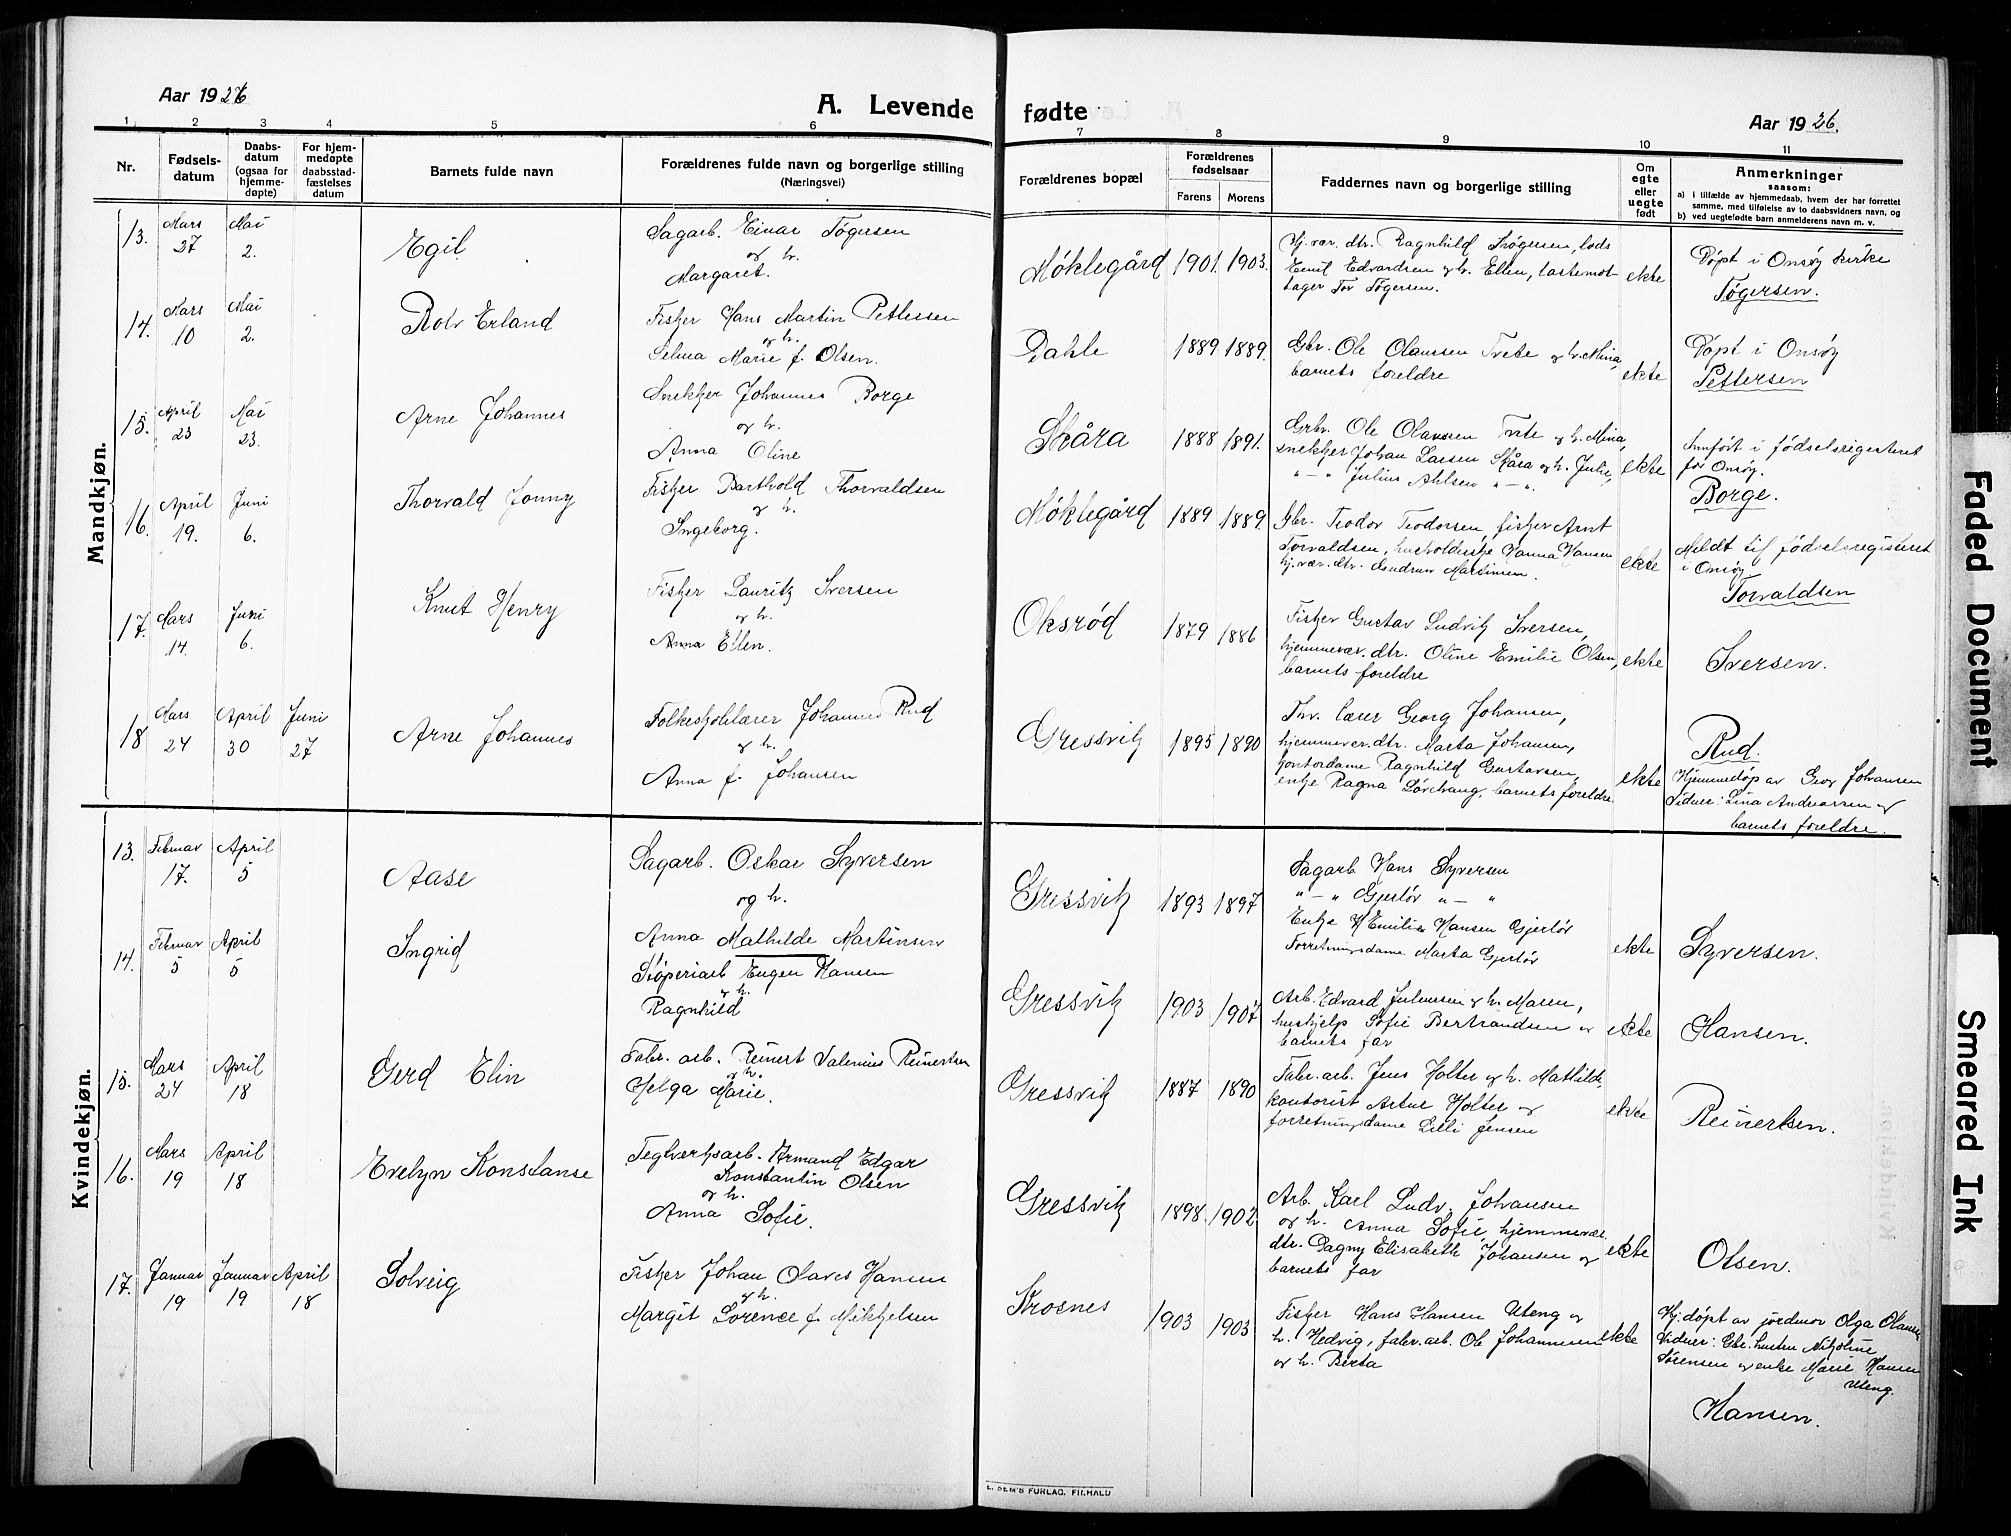 Aar 1926
A. Levende
fødte
Aar 1926.
1 2 3 4 5 6 7 8 9 10 11
Nr.
Fødsels-
datum
Daabs-
datum
(ogsaa for
hjemme-
døpte)
For hjem-
medøpte
daabsstad-
fæstelses
datum
Barnets fulde navn
Forældrenes fulde navn og borgerlige stilling
(Næringsvei)
Forældrenes bopæl
Forældrenes
fødselsaar
Farens
Morens
Faddernes navn og borgerlige stilling
Om
egte
eller
uegte
født
Anmerkninger
saasom:
a) i tilfælde av hjemmedaab, hvem der har forrettet
samme, med tilføielse av to daabsvidners navn, og
b) ved uegtefødte barn anmelderens navn m. v.
Mandkjøn.
13.
Mars
27
Mai
2.
Egil
Sagarb. Einar Tøgersen
og h.
Margaret.
Møklegård
1901. 1903.
Hj. vær. dtr. Ragnhild Tøgersen, lods
Emil Edvardsen og h. Ellen, lastemot-
tager Tor Tøgersen.
ekte
Døpt i Onsøy kirke
Tøgersen.
14.
Mars
10
Mai
2.
Rolv Erland
Fisker Hans Martin Pettersen
og h.
Selma Marie f. Olsen.
Dahle
1889. 1889.
Gbr. Ole Olaussen Tvete og h. Mina,
barnets foreldre
ekte
Døpt i Onsøy
Pettersen
15.
April
23
Mai
23.
Arne Johannes
Snekker Johannes Borge
og h.
Anna Oline
Skåra
1888 1891.
Grbr. Ole Olaussen Tvete og h. Mina,
snekker Johan Larsen Skåra og h. Julie,
" — " Julius Ahlsen " — ".
ekte
Innført i fødselsregisteret
for Onsøy.
Borge.
16.
April
19.
Juni
6.
Thorvald Jonny
Fisker Barthold Thorvaldsen
og h.
Ingeborg.
Møklegård
1889 1889.
Gbr. Teodor Teodorsen, fisker Arnt
Torvaldsen, husholderske Hanna Hansen
hj. vær. dtr. Gudrun Martinsen.
ekte
Meldt til fødselsregisteret
i Onsøy
Torvaldsen
17.
Mars
14.
Juni
6.
Knut Henry
Fisker Lauritz Iversen
og h.
Anna Ellen.
Oksrød
1879 1886
Fisker Gustav Ludvik Iversen,
hjemmevær. dtr. Oline Emilie Olsen,
barnets foreldre
ekte
Iversen.
18
Mars
24
April
30
Juni
27
Arne Johannes
Folkeskolelærer Johannes Rud
og h.
Anna f. Johansen
Gressvik
1895 1890
Thv. lærer Georg Johansen,
hjemmevær. dtr. Marta Johansen,
kontordame Ragnhild Gustavsen,
enke Ragna Løvehaug, barnets foreldre.
ekte
Rud.
Hjemmedøp av Georg Johansen
Vidner: Lina Andreassen og
barnets foreldre.
Kvindekjøn.
13.
Februar
17.
April
5
Aase
Sagarb. Oskar Syversen
og h.
Anna Mathilde Martinsen
Gressvik
1893 1897
Sagarb Hans Syversen
" — " Gjerløv " — "
Enke Emilie Hansen Gjerløv
Forretningsdame Marta Gjerløv
ekte
Syversen.
14.
Februar
5
April
5
Ingrid
Støperiarb Eugen Hansen
og h.
Ragnhild
Gressvik
1903 1907
Arb. Edvard Juliussen og h. Maren,
hushjelp Sofie Bertrandsen og
barnets far
ekte
Hansen.
15.
Mars
24
April
18
Gerd Elin
Fabr. arb. Reinert Valenius Reinertsen
og h.
Helga Marie.
Gressvik
1887 1890
Fabr. arb. Jens Holter og h. Mathilde,
kontorist Artur Holter og
forretningsdame Lilli Jensen
ekte
Reinertsen.
16.
Mars
19
April
18
Evelyn Konstanse
Teglverksarb. Armand Edgar
Konstantin Olsen
og h.
Anna Sofie.
Gressvik
1898. 1902.
Arb. Karl Ludv. Johansen
og h. Anna Sofie, hjemmevær.
dtr. Dagny Elisabeth Johansen og
barnets far
ekte
Olsen.
17.
Januar
19
Januar
19
April
18
Solveig
Fisker Johan Olaves Hansen
og h.
Margit Lorence f. Mikkelsen
Krosnes
1903 1903
Fisker Hans Hansen Uteng og
h. Hedvig, fabr. arb. Ole Johannesen
og h. Berta
ekte
Hj. døpt av jordmor Olga Olausen
Vidner: Gbr. hustru Nikoline
Sørensen og enke Marie Hansen
Uteng.
Hansen.
E. SEM'S FORLAG, FR.HALD
Faded Document
Smeared Ink